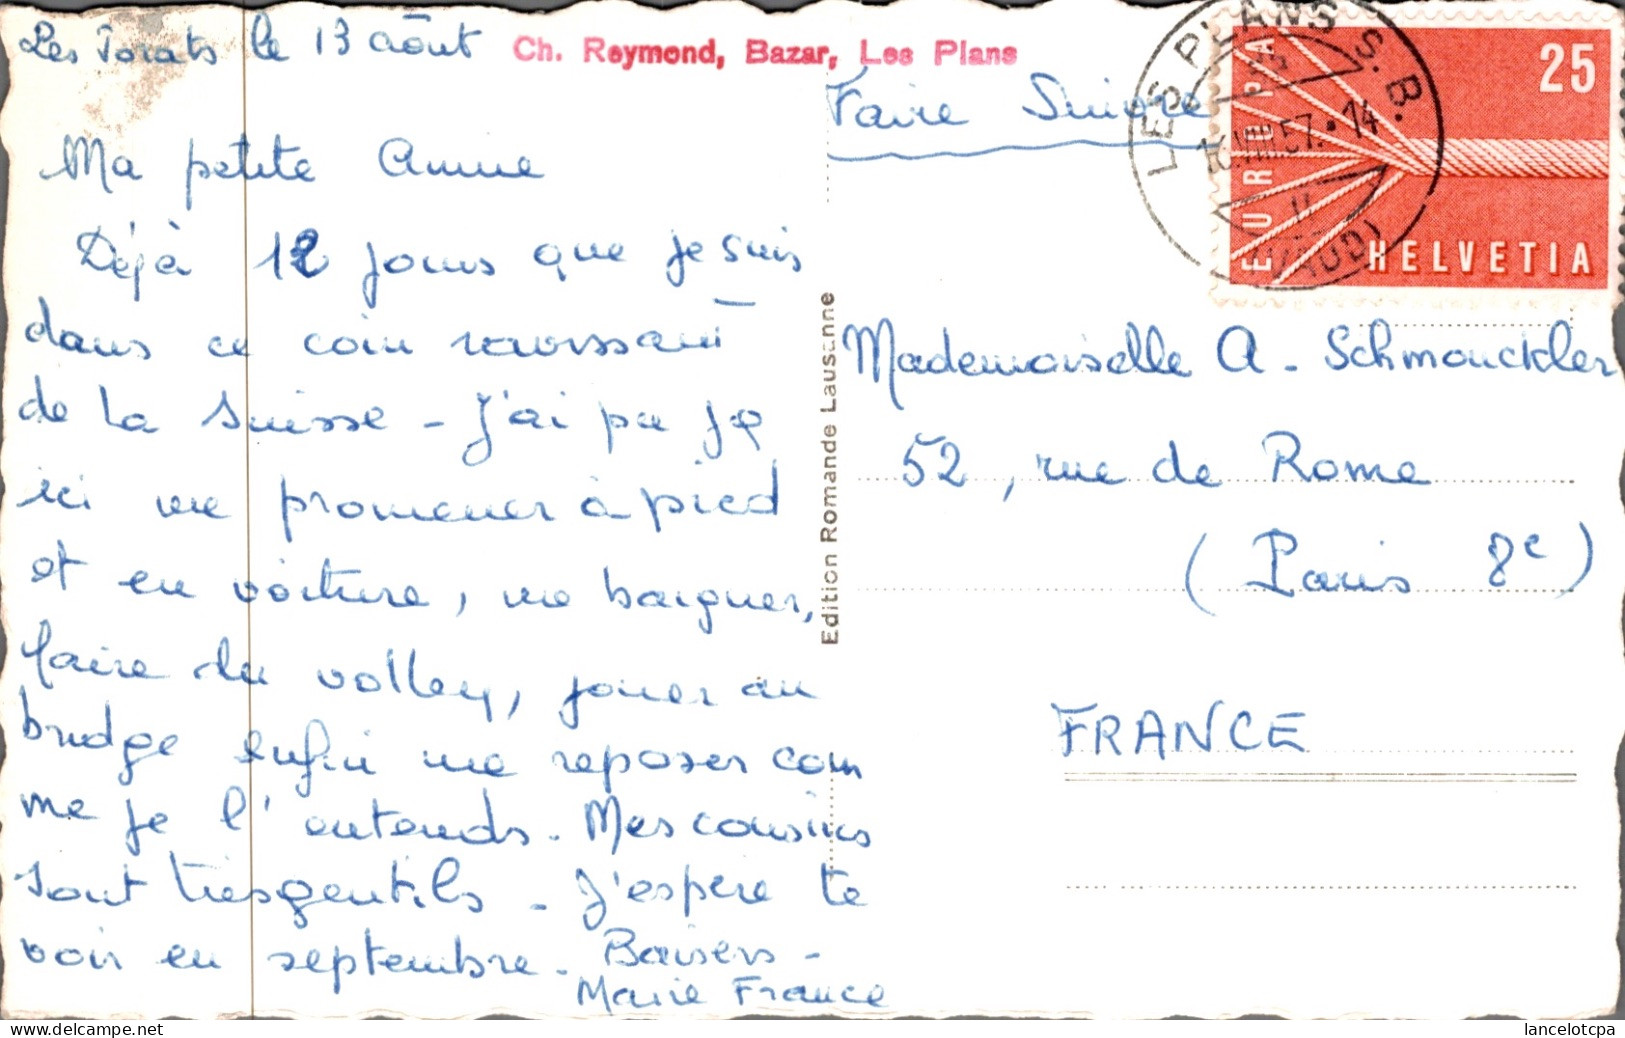 Les Torats le 13 août
Ch. Reymond, Bazar, Les Plans
Ma petite Anne
Déjà 12 jours que je suis
dans ce coin ravissant
de la Suisse - J'ai pu je
ici me promener à pied
et en voiture, me baigner,
faire du volley, jouer au
bridge enfin me reposer com
me je l'entends. Mes cousins
sont très gentils - J'espère te
voir en septembre. Baisers -
Marie France
Edition Romande Lausanne
Faire Suivre
LES PLANS S. B.
VIII 57. 14
(VAUD)
EUROPA
25
HELVETIA
Mademoiselle A. Schmouckler
52, rue de Rome
(Paris 8e)
FRANCE
Website : www.delcampe.net
lancelotcpa